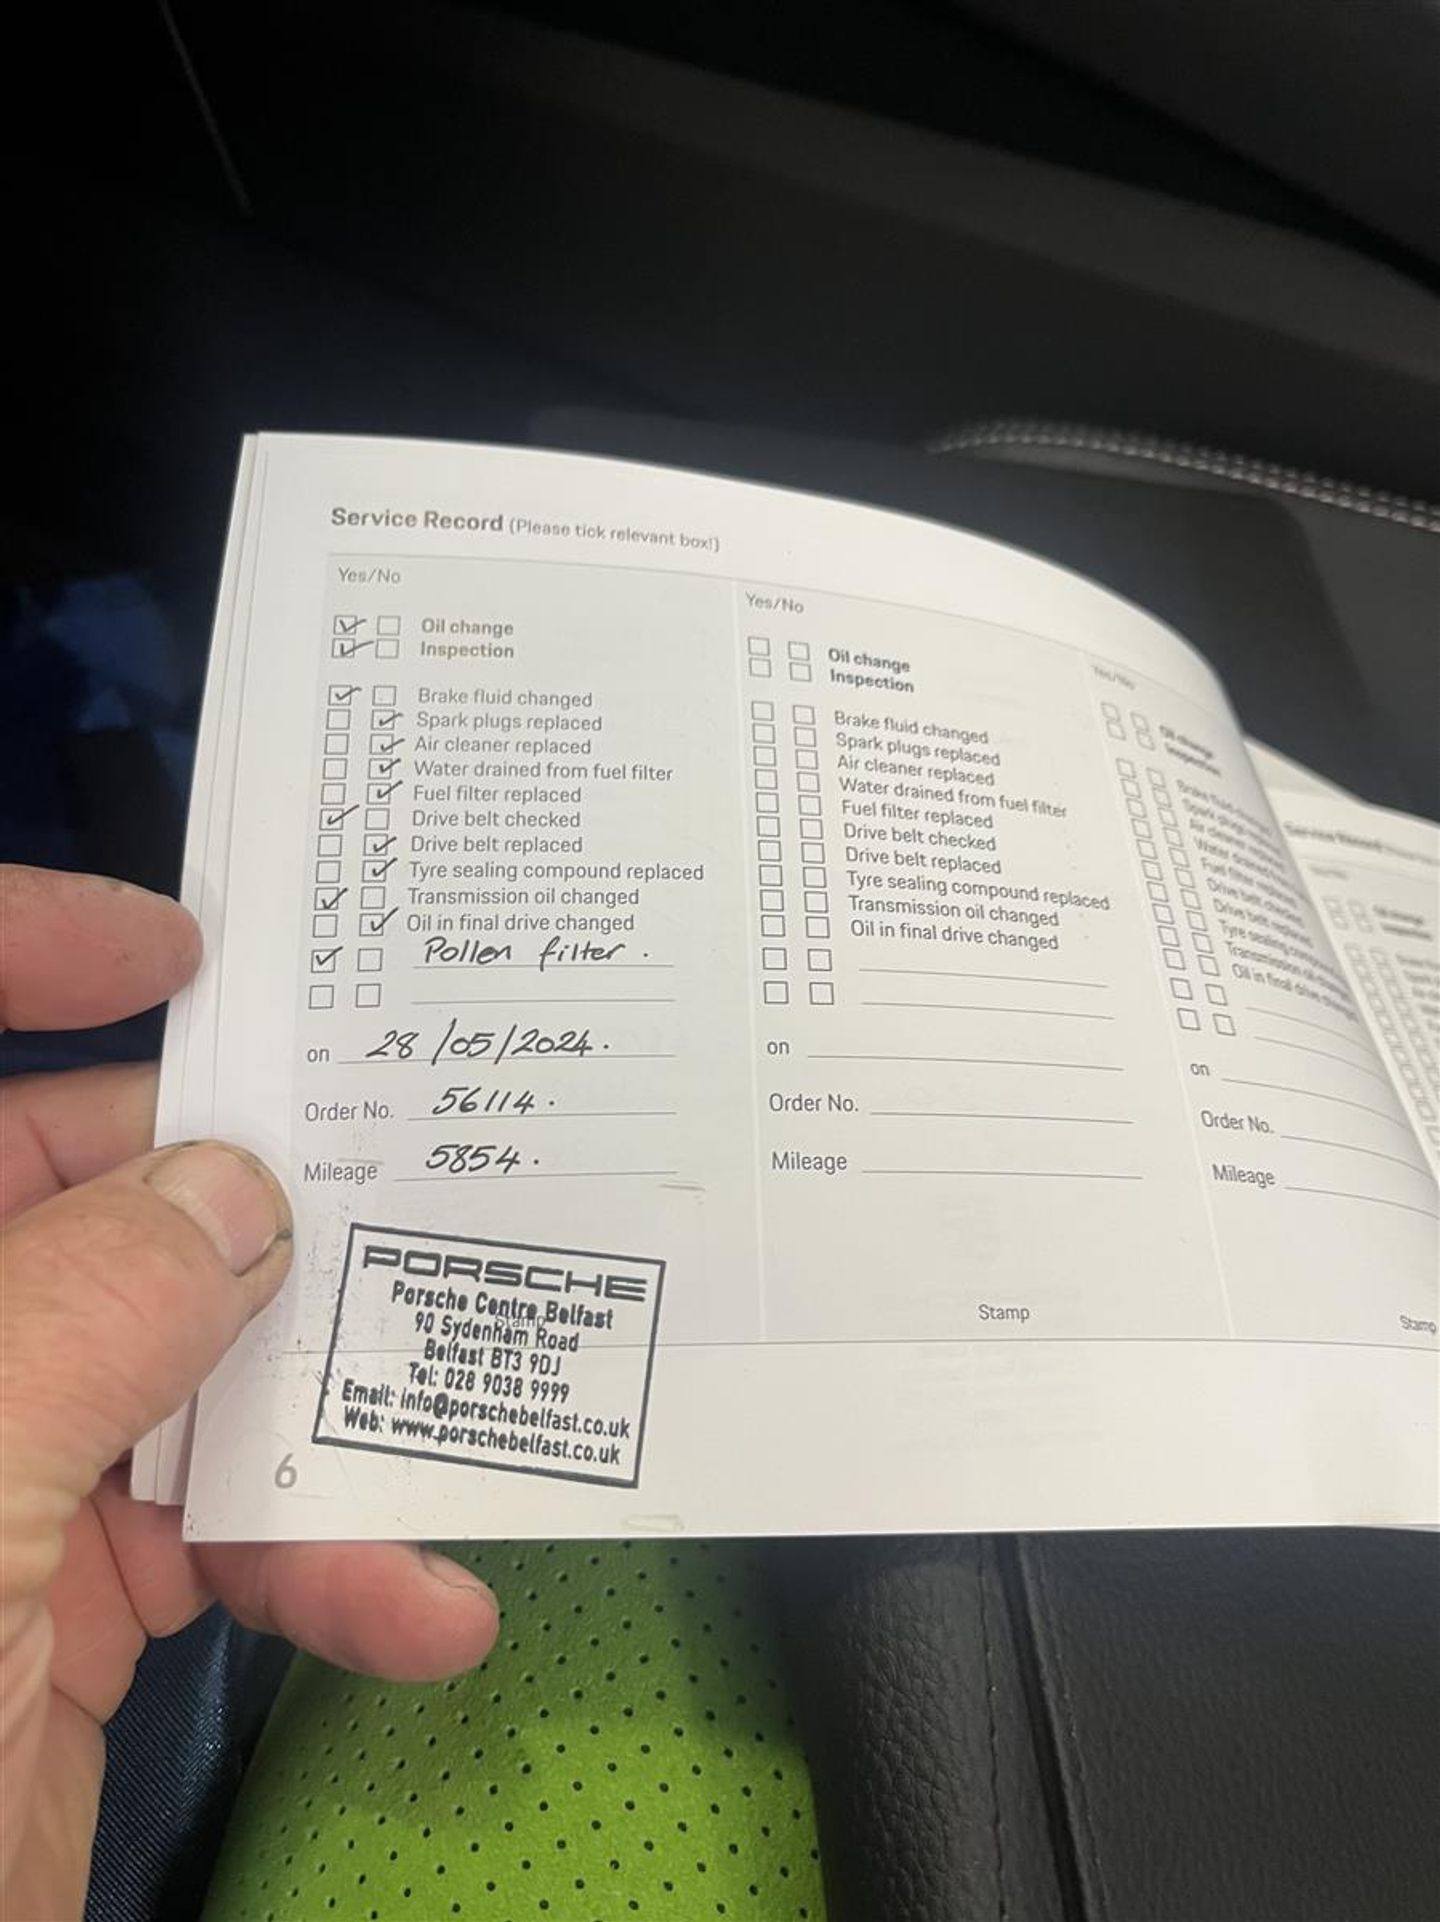 Service Record (Please tick relevant box!)
Yes/No
Oil change
Inspection
Brake fluid changed
Spark plugs replaced
Air cleaner replaced
Water drained from fuel filter
Fuel filter replaced
Drive belt checked
Drive belt replaced
Tyre sealing compound replaced
Transmission oil changed
Oil in final drive changed
Pollen filter.
on 28/05/2024.
Order No. 56114.
Mileage 5854.
Stamp
PORSCHE
Porsche Centre Belfast
90 Sydenham Road
Belfast BT3 9DJ
Tel: 028 9038 9999
Email: info@porschebelfast.co.uk
Web: www.porschebelfast.co.uk
6
Yes/No
Oil change
Inspection
Brake fluid changed
Spark plugs replaced
Air cleaner replaced
Water drained from fuel filter
Fuel filter replaced
Drive belt checked
Drive belt replaced
Tyre sealing compound replaced
Transmission oil changed
Oil in final drive changed
on
Order No.
Mileage
Stamp
Yes/No
Oil change
Inspection
Brake fluid
Spark plugs
Air cleaner
Water drained
Fuel filter
Drive belt
Drive belt
Tyre sealing
Transmission oil
Oil in final drive
on
Order No.
Mileage
Stamp
Service Record